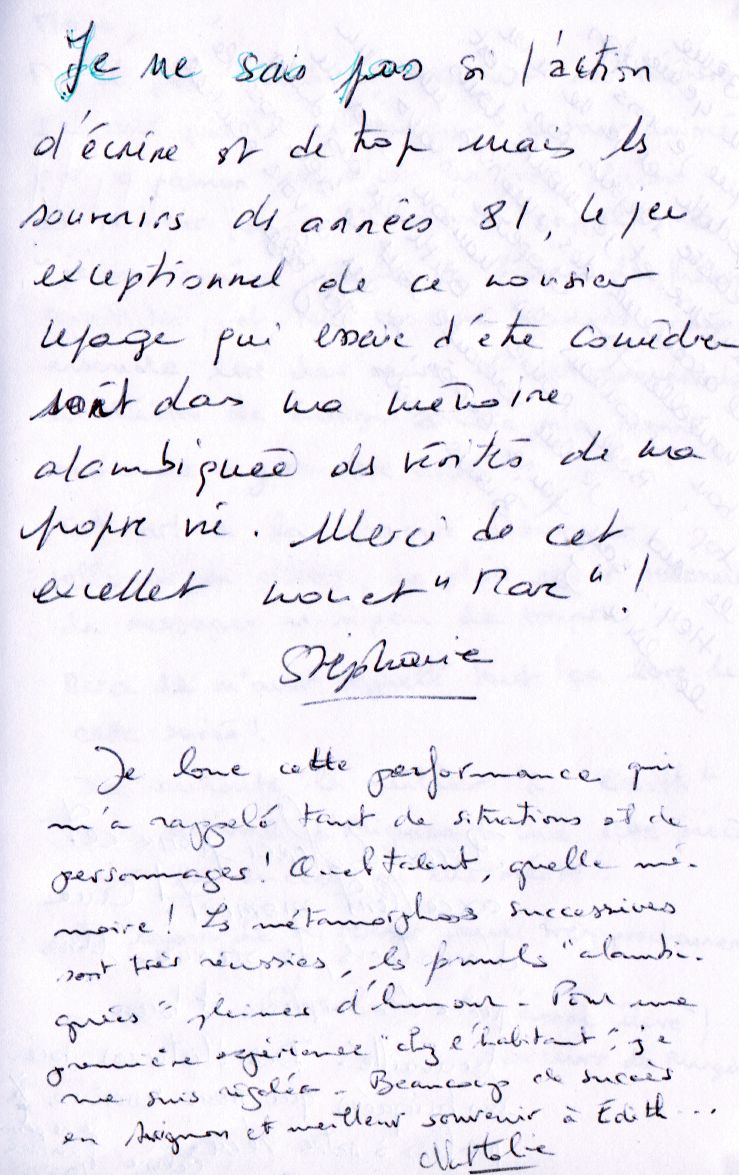 Je ne sais pas si l'action
d'écrire est de trop mais les
souvenirs des années 81, le jeu
exceptionnel de ce monsieur
Lepage qui essaie d'être comédien
sont dans ma mémoire
alambiquée des vérités de ma
propre vie. Merci de cet
excellent moment "Marc"!
Stéphanie
Je loue cette performance qui
m'a rappelé tant de situations et de
personnages! Quel talent, quelle mé-
moire! Les métamorphoses successives
sont très réussies, les "alambi-
quées" pleines d'humour - Pour une
première expérience "chez l'habitant", je
me suis régalée - Beaucoup de succès
en Avignon et meilleur souvenir à Edith...
Nathalie